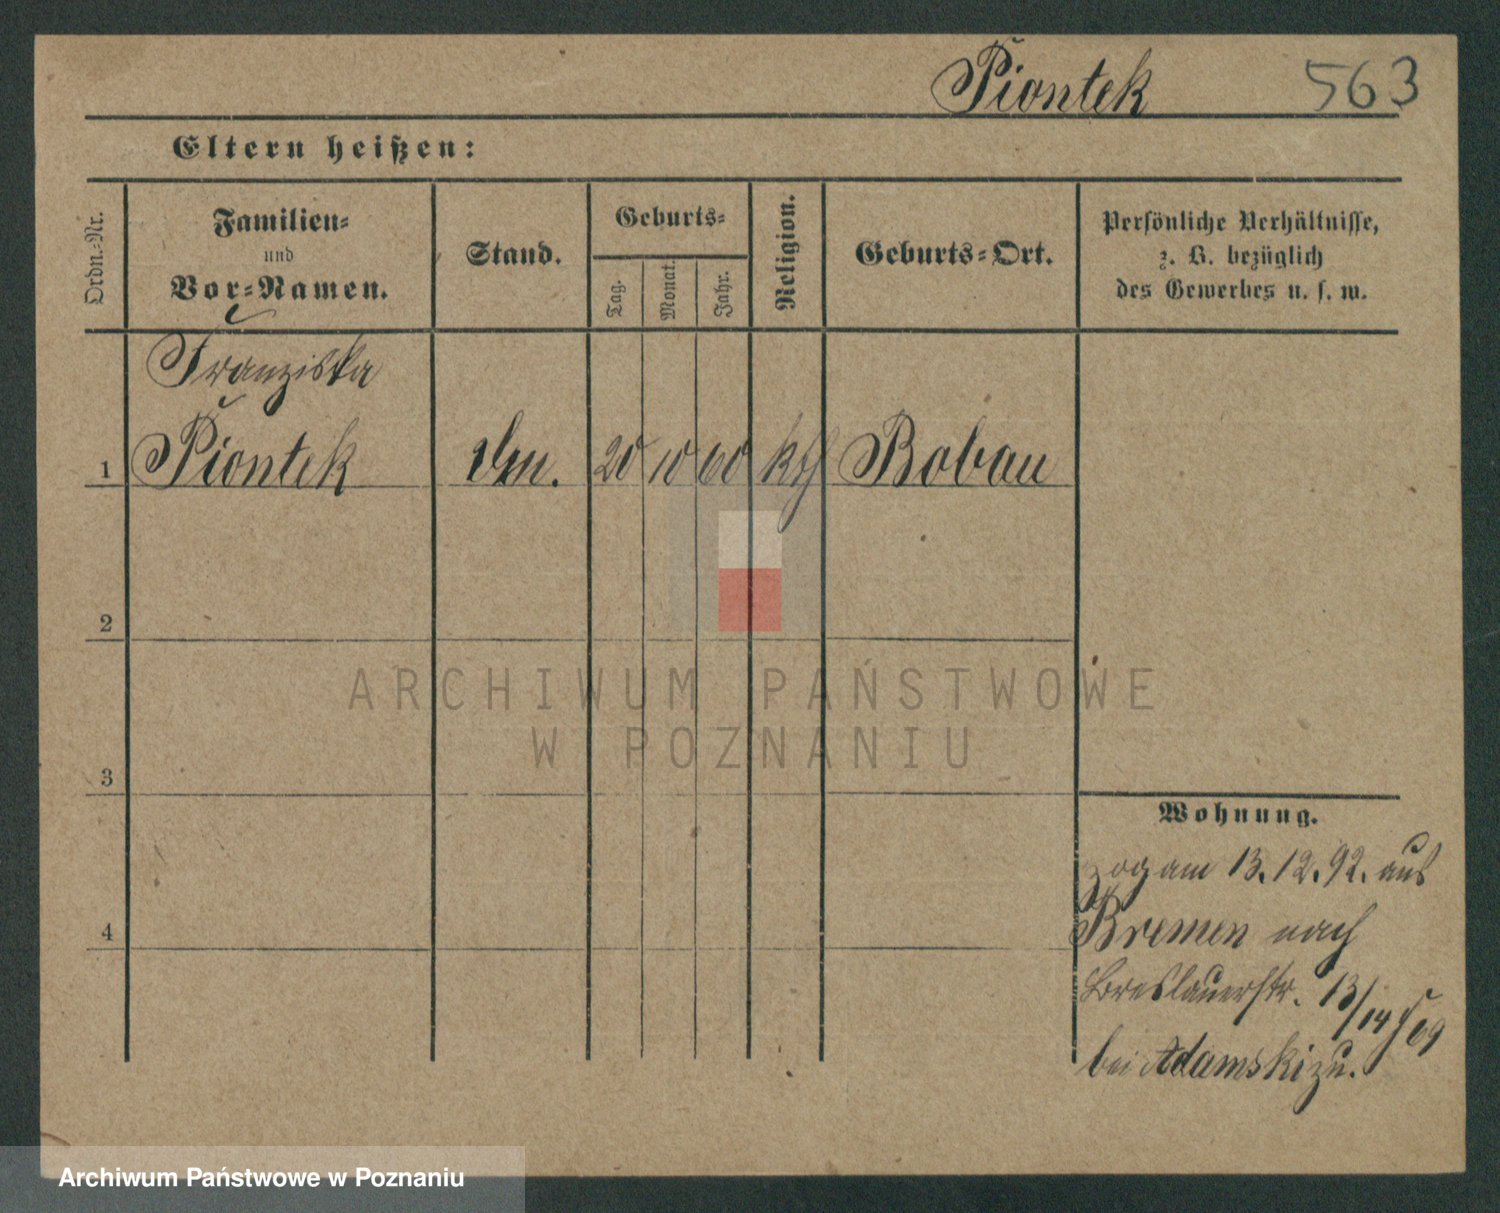 Piontek 563
Eltern heißen:
Ordn.-Nr.
Familien-
und
Vor-Namen.
Stand.
Geburts-
Tag.
Monat.
Jahr.
Religion.
Geburts-Ort.
Persönliche Verhältnisse,
z. B. bezüglich
des Gewerbes u. s. w.
Franziska
1 Piontek 20 10 60 kth Bobau
2
3
4
Wohnung.
zog am 13.12.92. aus
Bremen nach
Breslauerstr. 13/14
bei Adamski zu.
ARCHIWUM PAŃSTWOWE
W POZNANIU
Archiwum Państwowe w Poznaniu